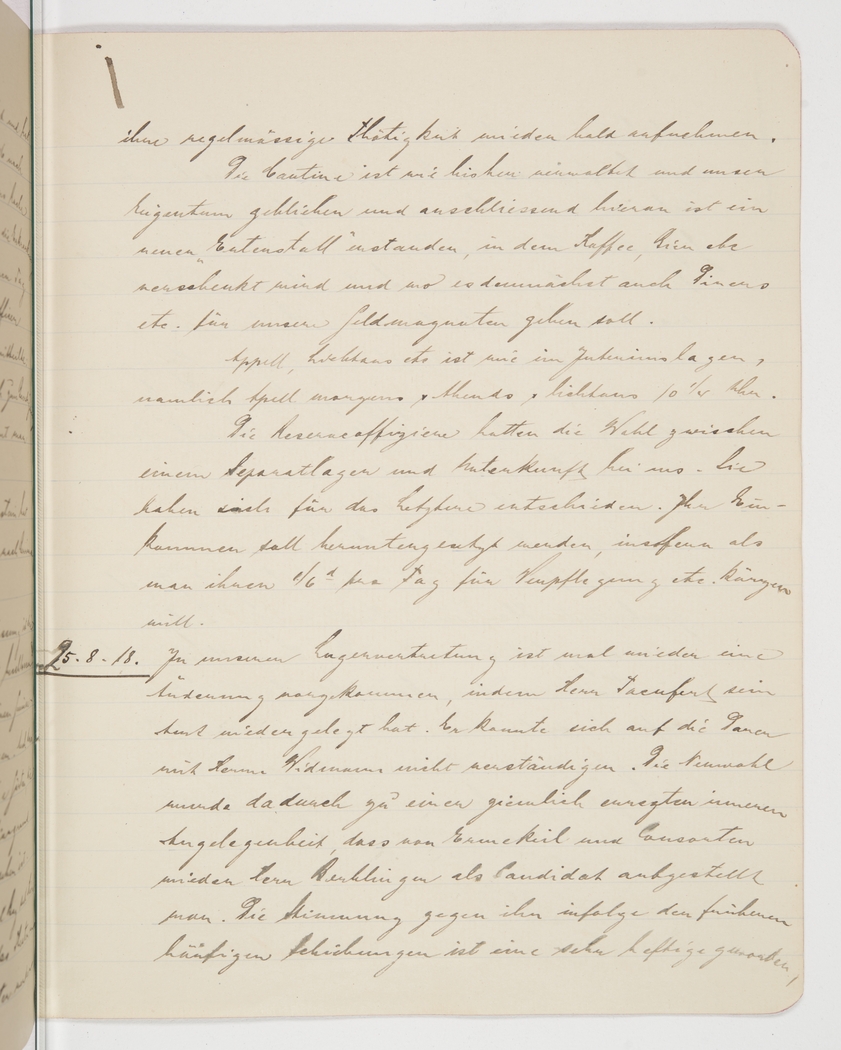 ihre regelmässige Thätigkeit wieder bald aufnehmen.
Die Cantine ist wie bisher verwaltet und unser
Eigentum geblieben und anschliessend hieran ist ein
neuer „Entenstall" entstanden, in dem Kaffee, Bier etc
verschenkt wird und wo es demnächst auch Diners
etc. für unsere Geldmagnaten geben soll.
Appell, Lichtaus etc ist wie im Interimslager,
nämlich Apell morgens & Abends & lichtaus 10 1/4 Uhr.
Die Reserveoffiziere hatten die Wahl zwischen
einem Separatlager und Unterkunft bei uns. Sie
haben sich für das Letztere entschieden. Ihr Ein-
kommen soll heruntergesetzt werden, insofern als
man ihnen 1/6 d pro Tag für Verpflegung etc. kürzen
will.
25.8.18. In unserer Lagervertretung ist mal wieder eine
Änderung vorgekommen, indem Herr sein
Amt niedergelegt hat. Er konnte sich auf die Dauer
mit Herrn Widmann nicht verständigen. Die Neuwahl
wurde dadurch zu einer ziemlich erregten inneren
Angelegenheit, dass von und Consorten
wieder Herr Berblinger als Candidat aufgestellt
war. Die Stimmung gegen ihn infolge der früheren
häufigen Schiebungen ist eine sehr heftige geworden,